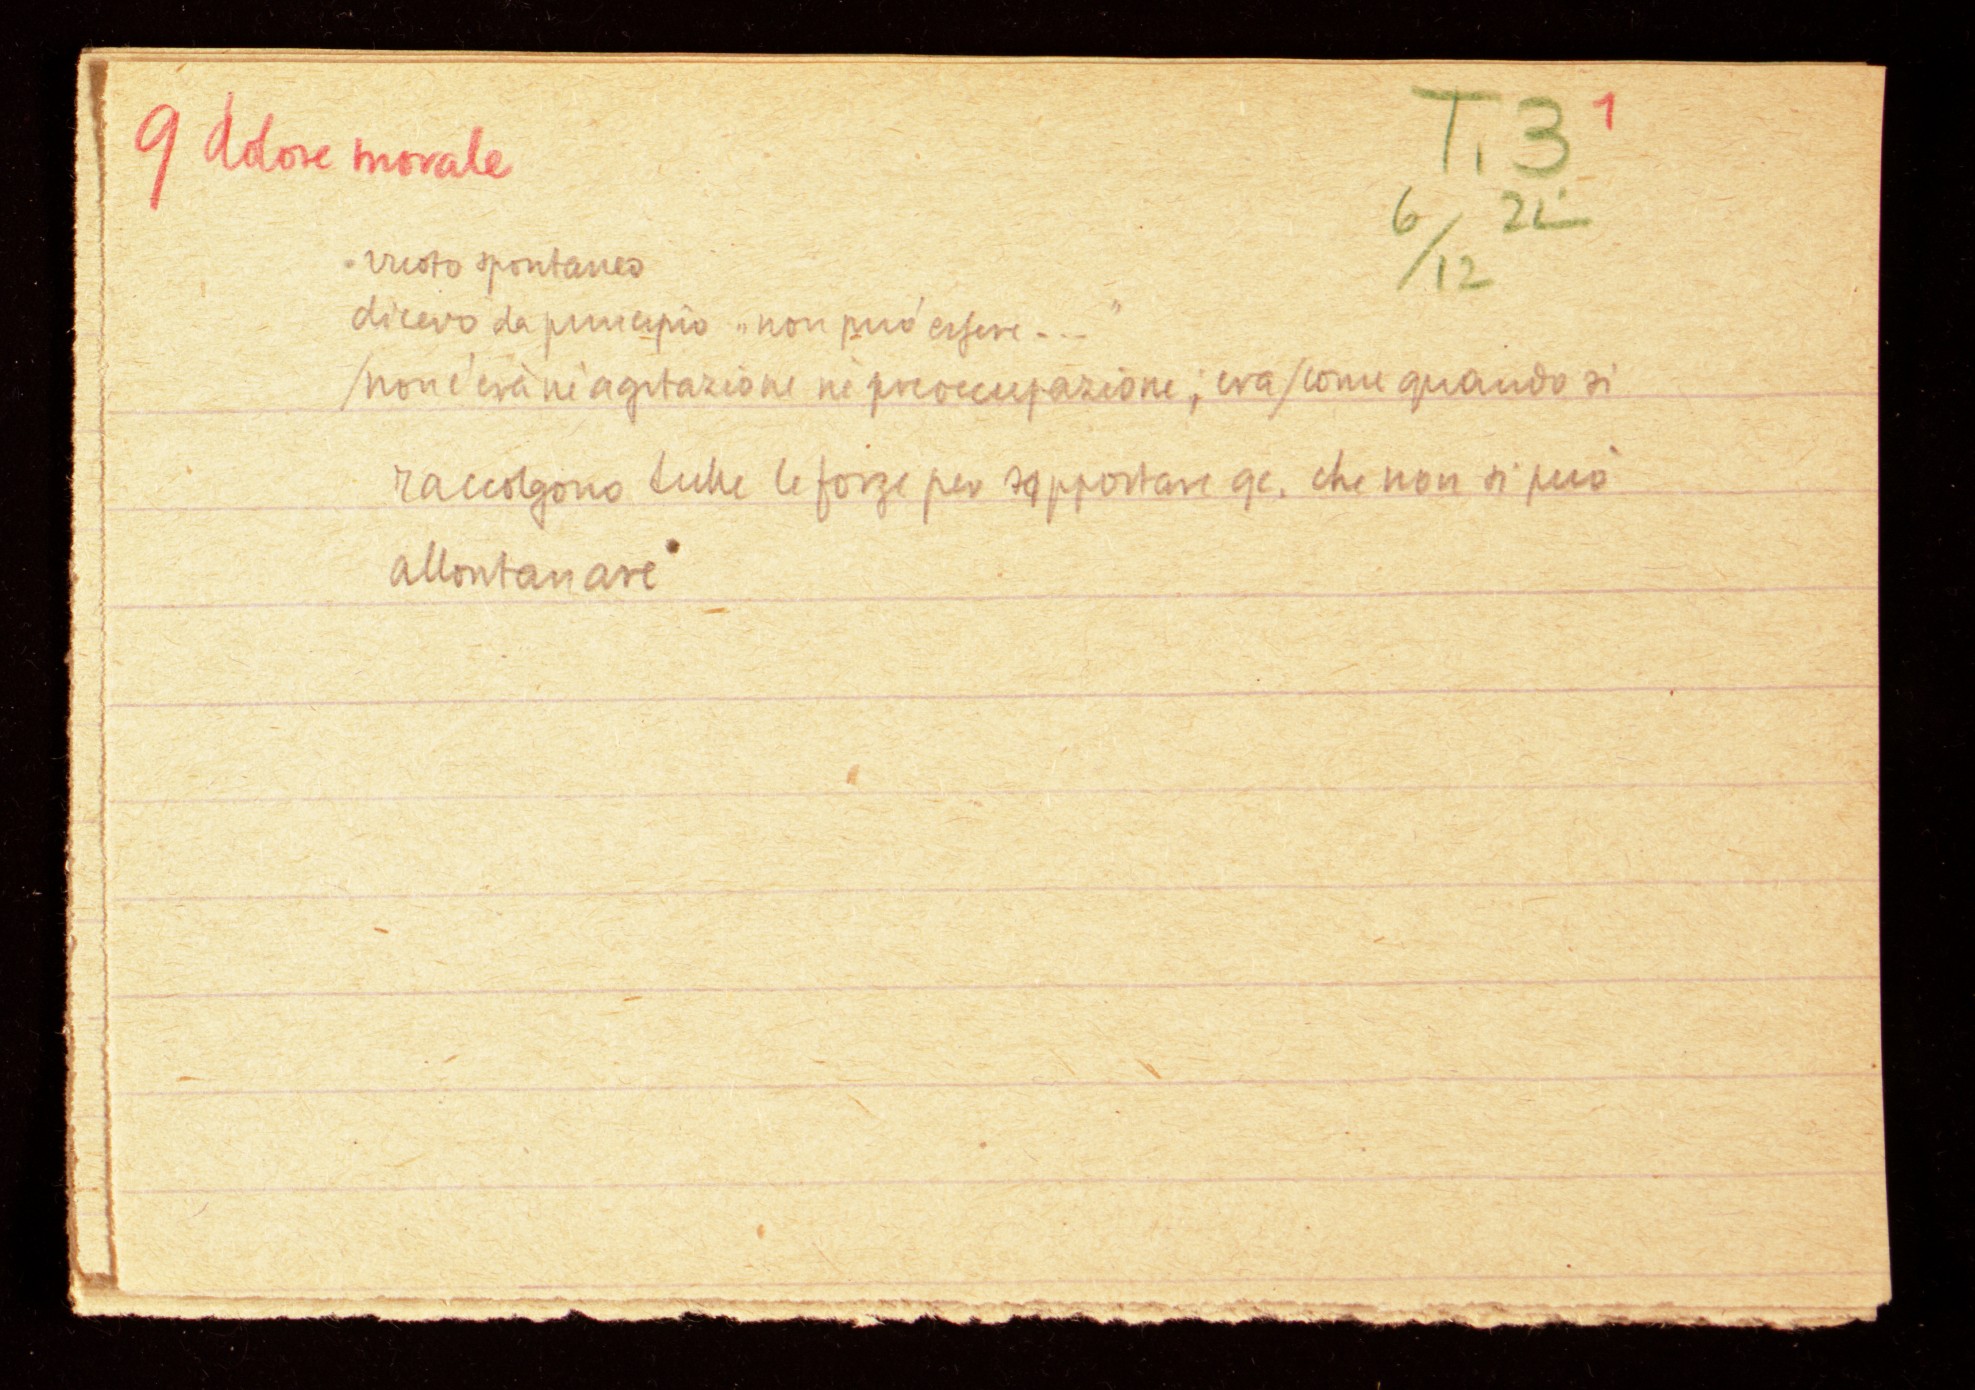 9 dolore morale
T. 3 1
6/12 2i
• vuoto spontaneo
dicevo da principio „non può essere - - - "
/non c'era nè agitazione nè preoccupazione; era/come quando si
raccolgono tutte le forze per sopportare qc. che non si può
allontanare